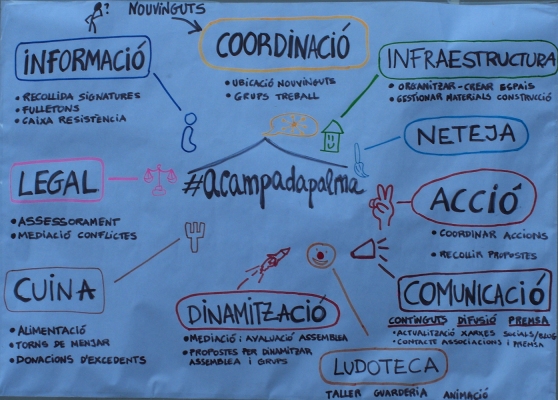 ?
NOUVINGUTS
INFORMACIÓ
• RECOLLIDA SIGNATURES
• FULLETONS
• CAIXA RESISTÈNCIA
COORDINACIÓ
• UBICACIÓ NOUVINGUTS
• GRUPS TREBALL
INFRAESTRUCTURA
• ORGANITZAR-CREAR ESPAIS
• GESTIONAR MATERIALS CONSTRUCCIÓ
NETEJA
LEGAL
• ASSESSORAMENT
• MEDIACIÓ CONFLICTES
#acampadapalma
ACCIÓ
• COORDINAR ACCIONS
• RECOLLIR PROPOSTES
CUINA
• ALIMENTACIÓ
• TORNS DE MENJAR
• DONACIONS D'EXCEDENTS
DINAMITZACIÓ
• MEDIACIÓ I AVALUACIÓ ASSEMBLEA
• PROPOSTES PER DINAMITZAR
ASSEMBLEA I GRUPS
COMUNICACIÓ
CONTINGUTS DIFUSIÓ PREMSA
• ACTUALITZACIÓ XARXES SOCIALS/BLOG
• CONTACTE ASSOCIACIONS I PREMSA
LUDOTECA
TALLER GUARDERIA ANIMACIÓ